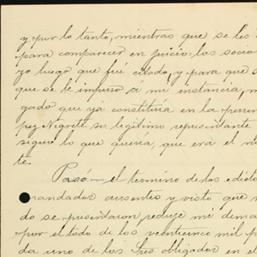 y por lo tanto, mientras que se les
para comparecer en juicio los socios
yo luego que fué citado, y para que
que se le impuso a mi instancia,
gado que ya constituía en la
pez Negrete su legítimo representante
siguió lo que quería que era el
te.
Pasó el término de los edictos
mandador ausentes y visto que
do se presentaron reduje mi deman
por el todo de los veinticinco mil
da uno de los tres obligados en el